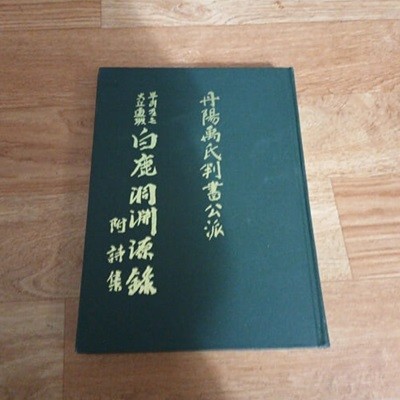 丹陽禹氏判書公派
白鹿洞淵源錄
附詩集